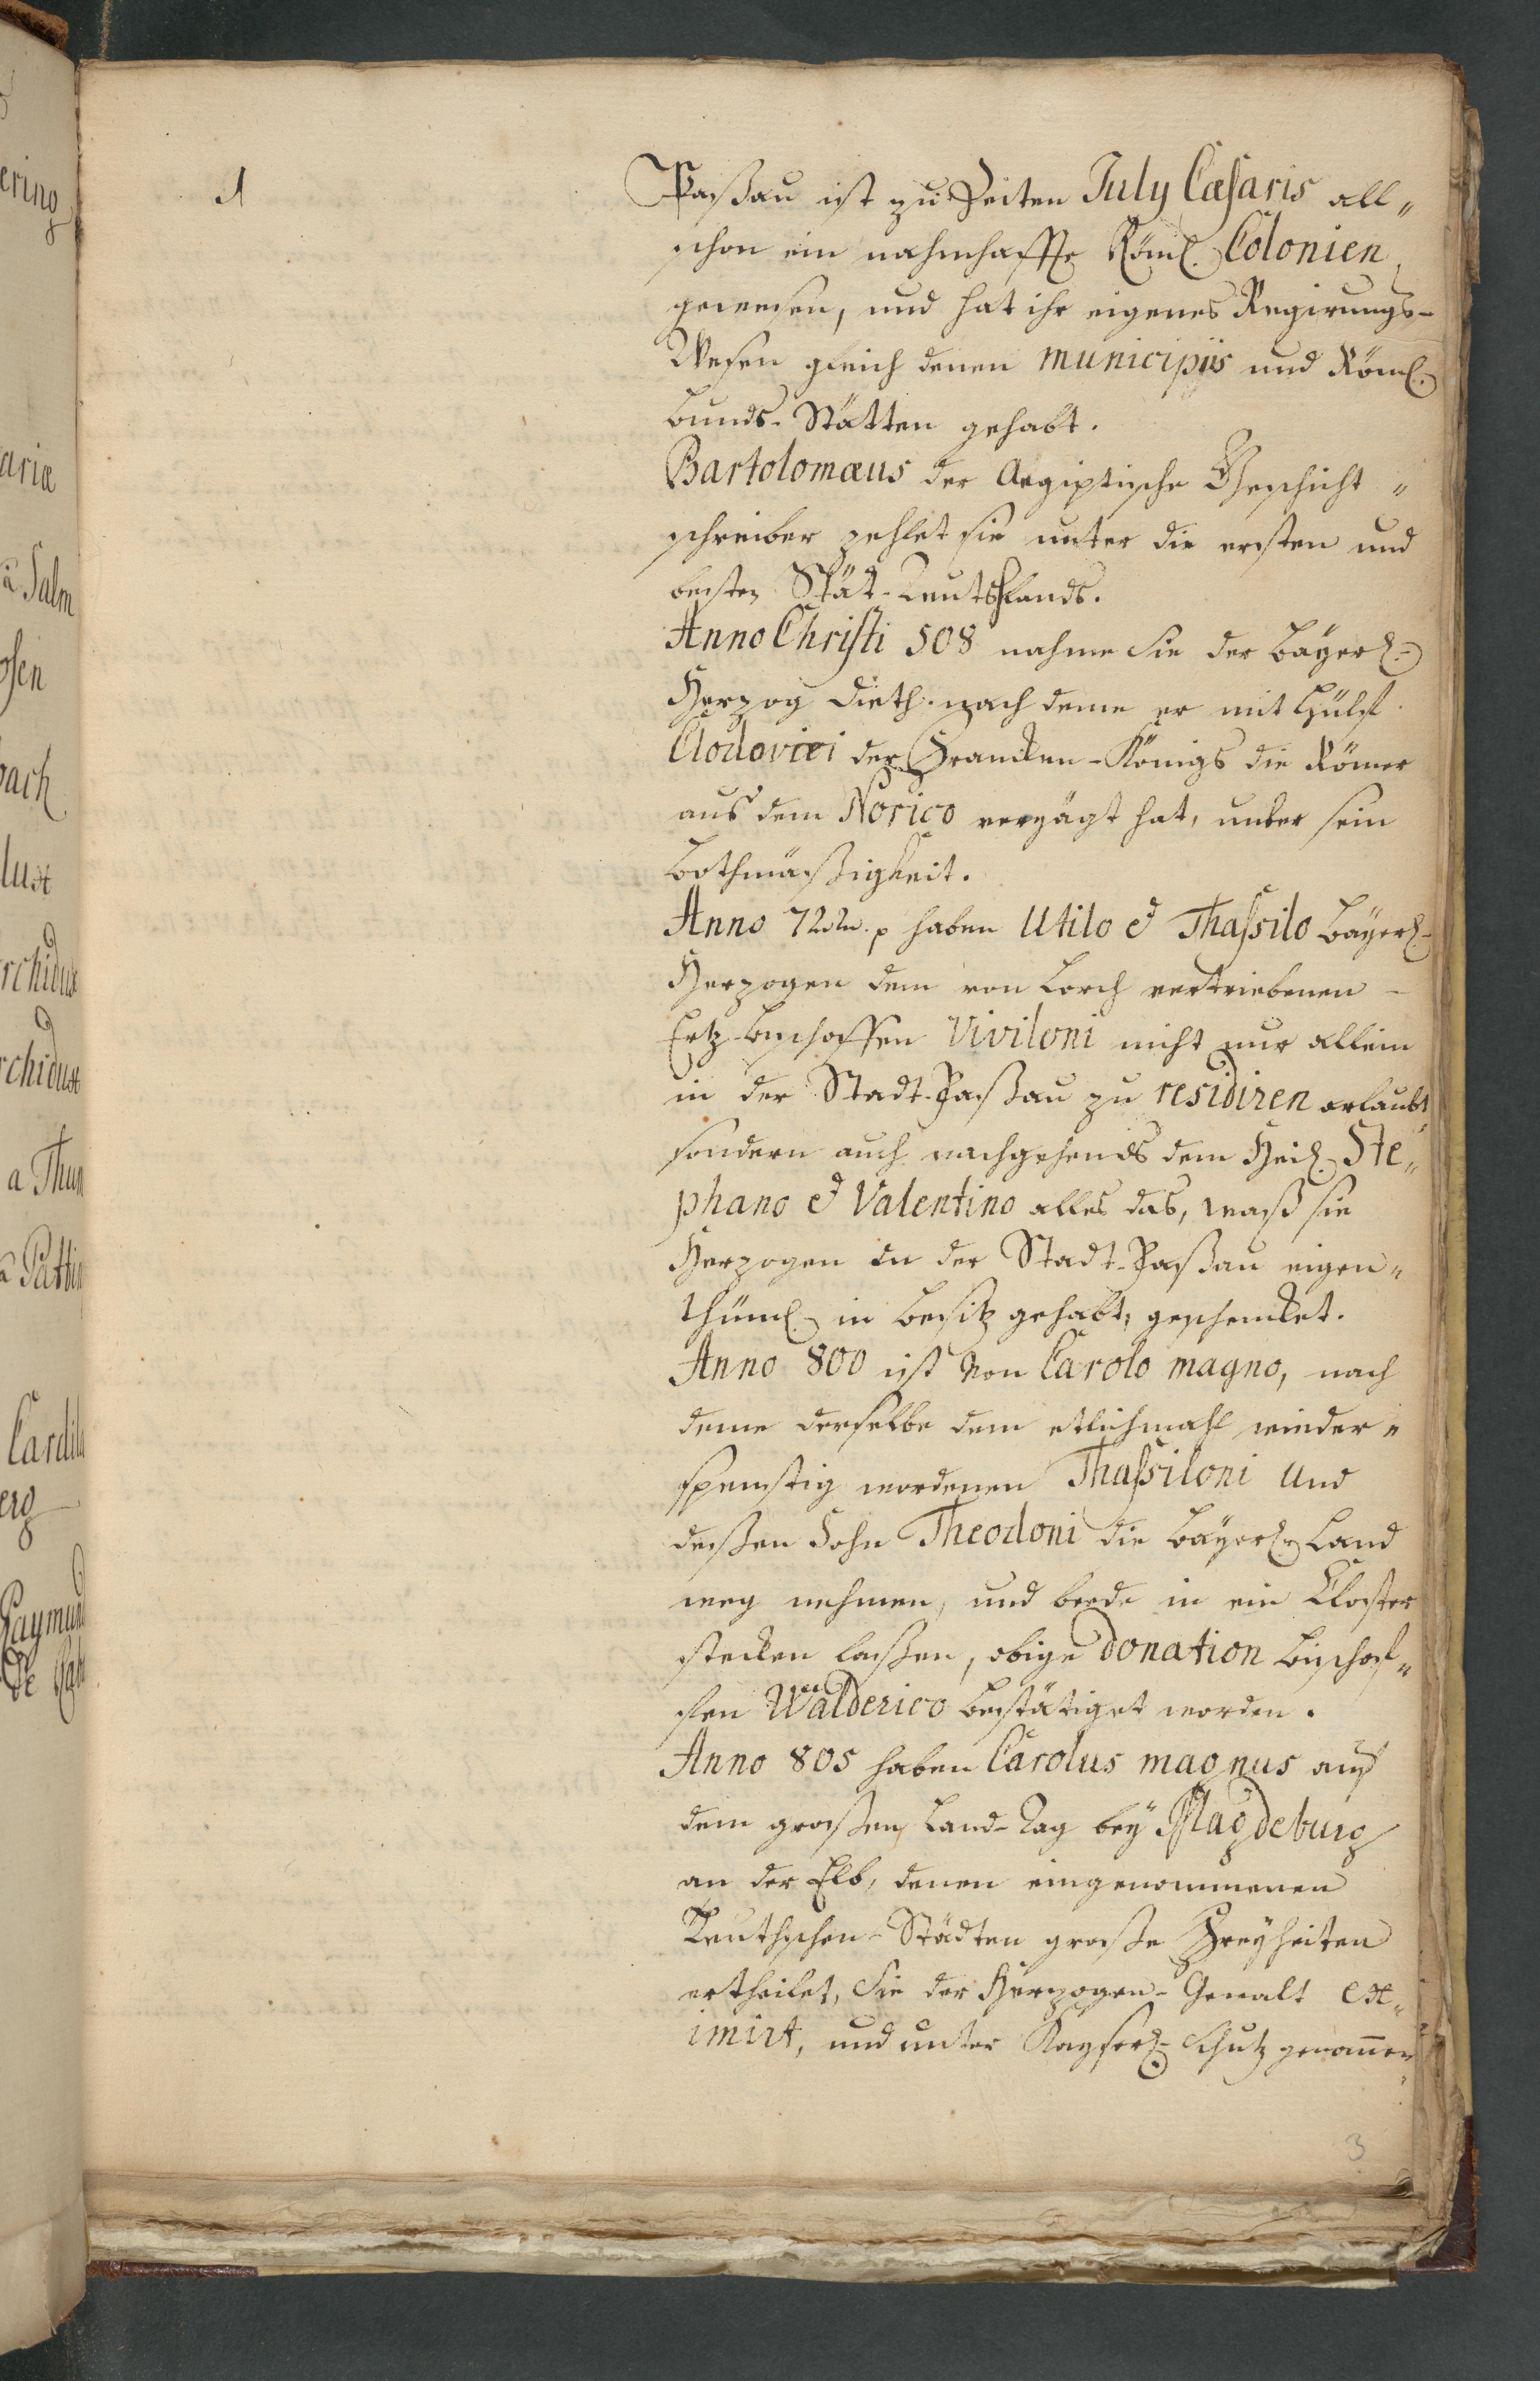 1
Paßau ist zu Zeiten July Cæsaris all„
schon ein nahmhaffte Röml. Colonien
gewesen, und hat ihr eigenes Regirungs-
Wesen gleich denen municipijs und Röml.
bunds-Stätten gehabt.
Bartolomæus der Aegiptische Gheschicht„
schreiber zehlet sie unter die ersten und
besten Stät-Teutschlands.
Anno Christi 508 nahme Sie der bäyerl.
Herzog Dieth. nach deme er mit hülf
Clodovici der Francken-Königs die Römer
aus dem Norico verjagt hat, unter sein
bothmäßigkeit.
Anno 722. p haben Utilo & Thassilo bäyerl.
Herzogen dem von Lorch vertriebenen
Ertz-bischoffen Viviloni nicht nur allein
in der Stadt-Paßau zu residiren erlaubt
sondern auch nachgehends dem Heil. Ste„
phano & Valentino alles das, waß sie
Herzogen in der Stadt-Paßau eigen„
thüml. in besitz gehabt, geschencket.
Anno 800 ist von Carolo magno, nach
deme derselbe dem etlichmahl wieder„
spenstig wordenen Thassiloni und
deßen Sohn Theodoni die bäyerl. Land
weg nehmen, und beede in ein Closter
stecken laßen, obige donation bischof„
fen Walderico bestätiget worden.
Anno 805 haben Carolus magnus auf
dem großen Land-Tag bey Magdeburg
an der Elb, denen eingenommenen
Teuthschen-Städten große Freyheiten
ertheilet, Sie der Herzogen-Gewalt ex„
imirt, und unter Kayserl. Schutz genomen
3
ering
ariæ
a Salm
osen
bach
lux
rchidux
rchidux
a Thun
a Pattin
Cardi
erg
Raymund
de